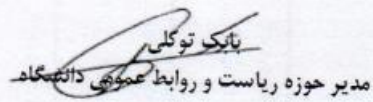 بابک توکلی
مدیر حوزه ریاست و روابط عمومی دانشگاه